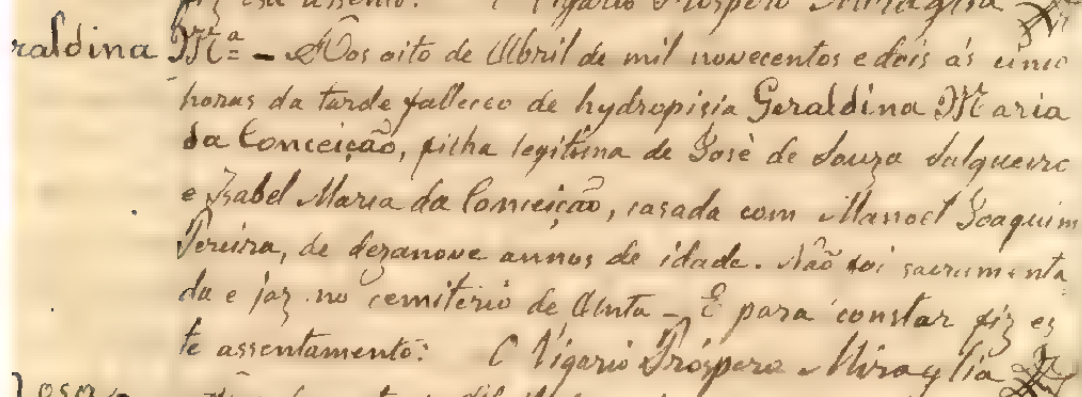 fiz este assento. O Vigario Próspero Miraglia
raldina Mª= - Aos oito de Abril de mil novecentos e dois ás cinco
horas da tarde falleceo de hydropisia Geraldina Maria
da Conceição, filha legitima de José de Souza Salgueiro
e Izabel Maria da Conceição, casada com Manoel Joaquim
Pereira, de dezanove annos de idade. Não foi sacramenta
da e jaz no cemiterio de Anta - E para constar fiz es
te assentamento: O Vigario Próspero Miraglia